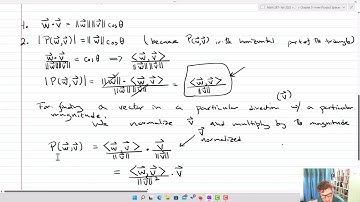 1. w⃗ · v⃗ = ||w⃗|| ||v⃗|| cos θ
2. |P(w⃗,v⃗)| = ||w⃗|| cos θ (because P(w⃗,v⃗) is the horizontal part of the triangle)
w⃗ · v⃗ / ||w⃗|| ||v⃗|| = cos θ ⟹ <w⃗,v⃗> / ||w⃗|| ||v⃗||
|P(w⃗,v⃗)| = ||w⃗|| · <w⃗,v⃗> / ||w⃗|| ||v⃗|| = <w⃗,v⃗> / ||v⃗||
For finding a vector in a particular direction (v⃗) w/ a particular
magnitude. We normalize v⃗ and multiply by the magnitude
v⃗ normalized
P(w⃗,v⃗) = <w⃗,v⃗> / ||v⃗|| · v⃗ / ||v⃗||
= <w⃗,v⃗> / ||v⃗||² · v⃗